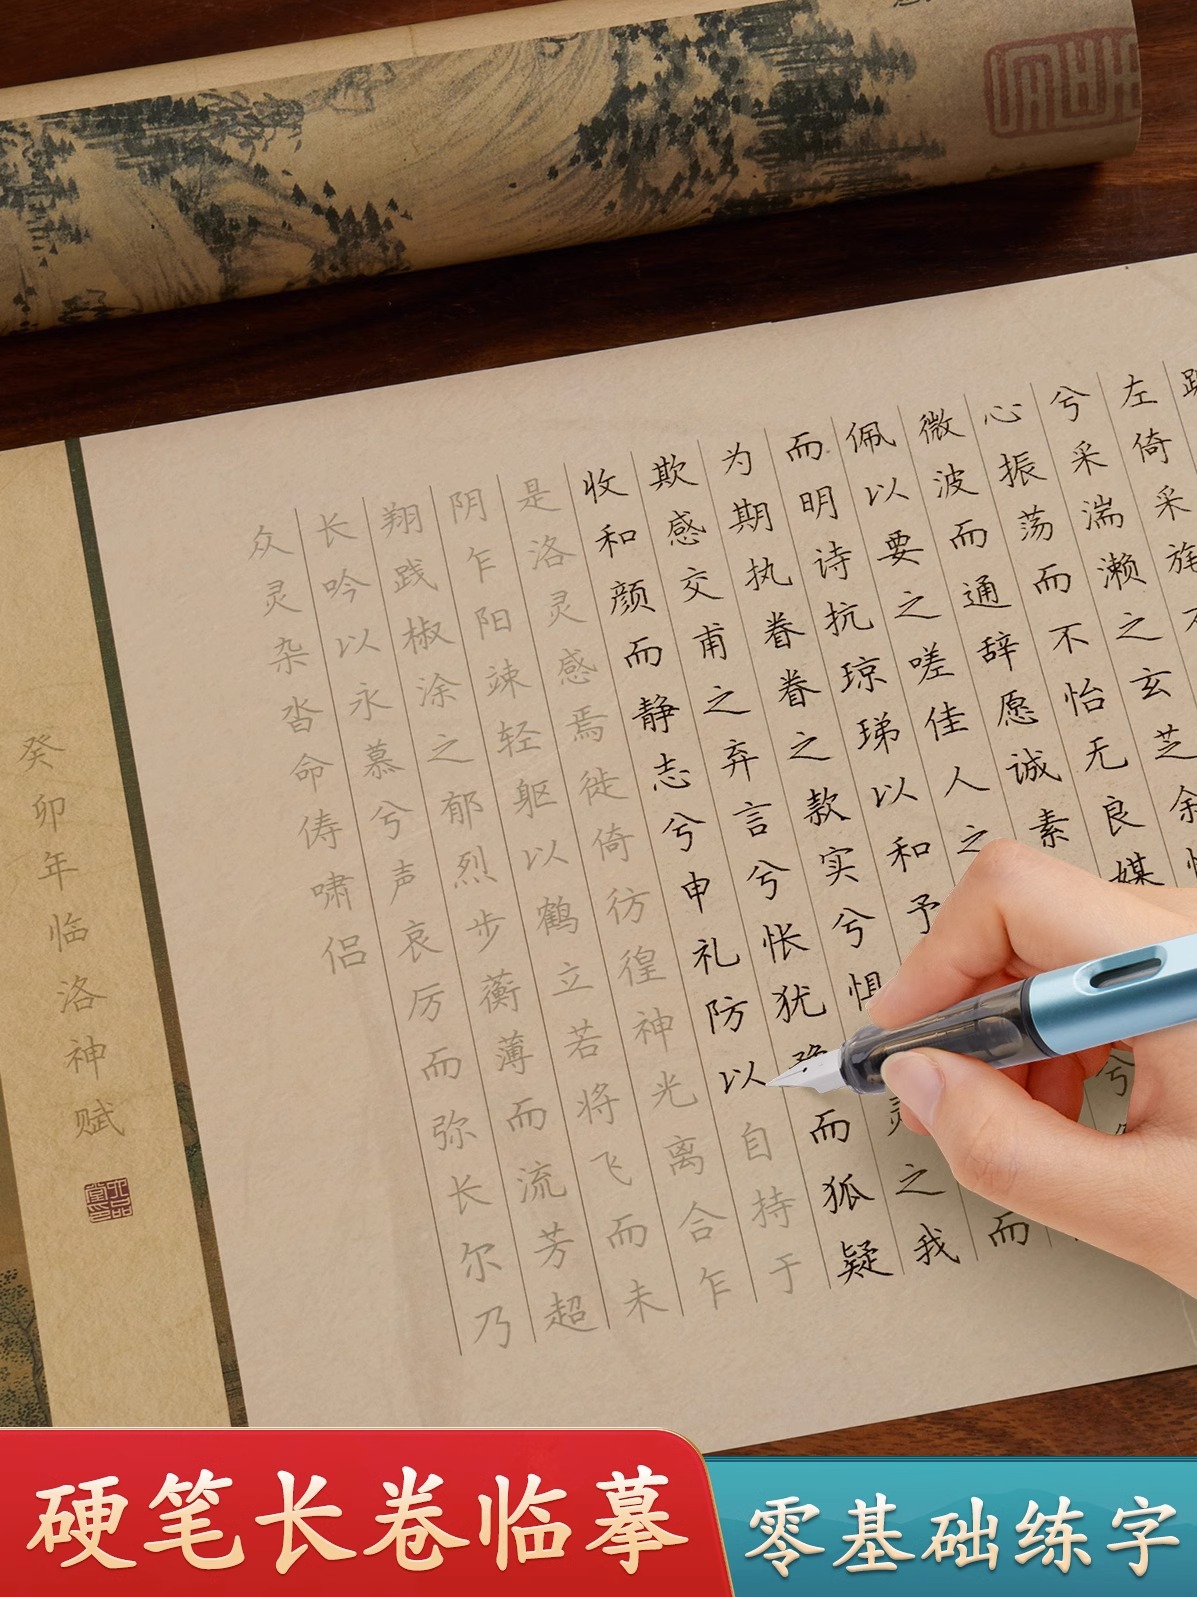 左倚采旄
兮采湍濑之玄芝余
心振荡而不怡无良媒
微波而通辞愿诚素兮
佩以要之嗟佳人之
而明诗抗琼珶以和予而
为期执眷眷之款实兮惧灵之我
欺感交甫之弃言兮怅犹豫而狐疑
收和颜而静志兮申礼防以自持于
是洛灵感焉徙倚彷徨神光离合乍
阴乍阳竦轻躯以鹤立若将飞而未
翔践椒涂之郁烈步蘅薄而流芳超
长吟以永慕兮声哀厉而弥长尔乃
众灵杂沓命俦啸侣
癸卯年临洛神赋
硬笔长卷临摹
零基础练字